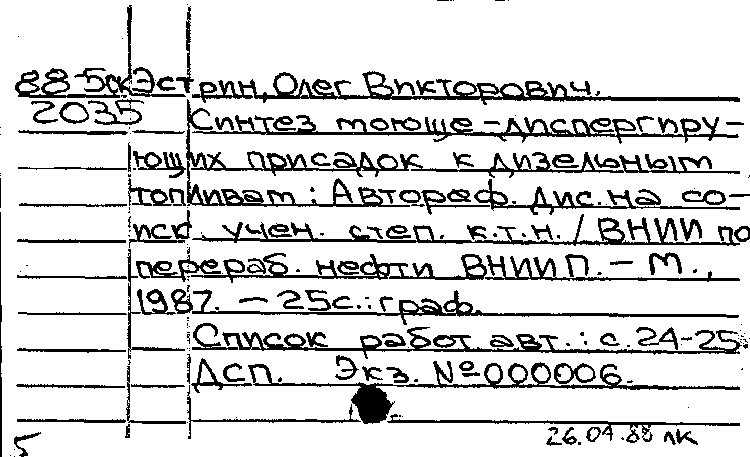 88-5ск Эстрин, Олег Викторович.
2035 Синтез моюще-диспергиру-
ющих присадок к дизельным
топливам : Автореф. дис. на со-
иск. учен. степ. к.т.н. / ВНИИ по
перераб. нефти ВНИИП. – М.,
1987. – 25с.: граф.
Список работ авт.: с. 24-25
ДСП. Экз. №000006.
26.04.88 лк
5